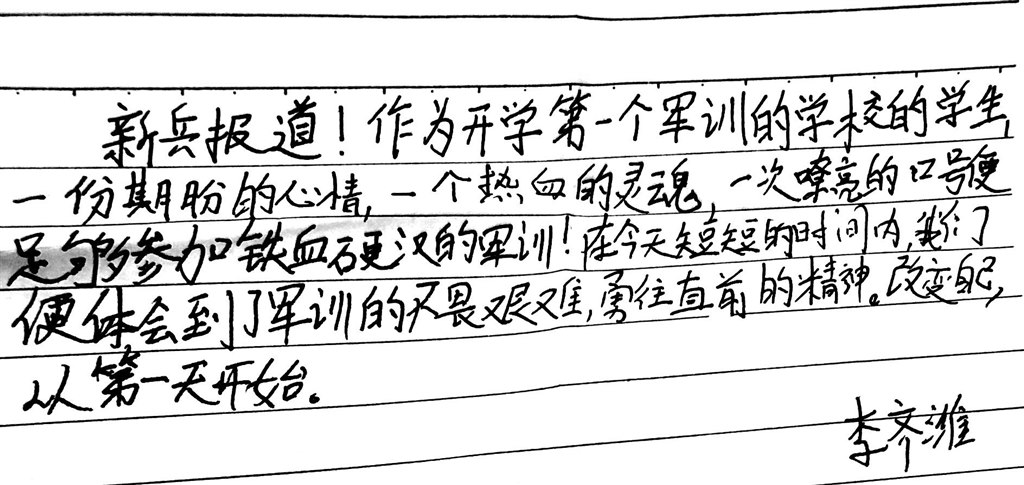 新兵报道！作为开学第一个军训的学校的学生，
一份期盼的心情，一个热血的灵魂，一次嘹亮的口号便
足够参加铁血硬汉的军训！在今天短短的时间内，我们
便体会到了军训的不畏艰难，勇往直前的精神。改变自己，
从第一天开始。
李齐潍